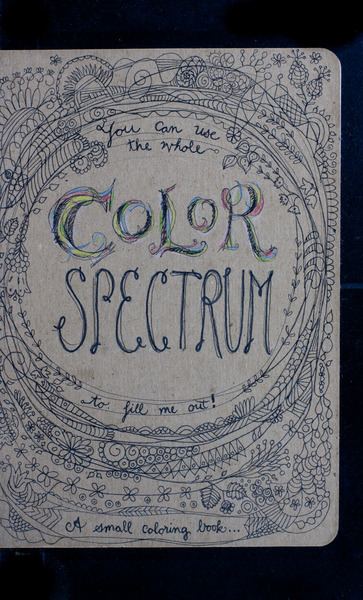 You can use
the whole
COLOR
SPECTRUM
to fill me out!
A small coloring book...